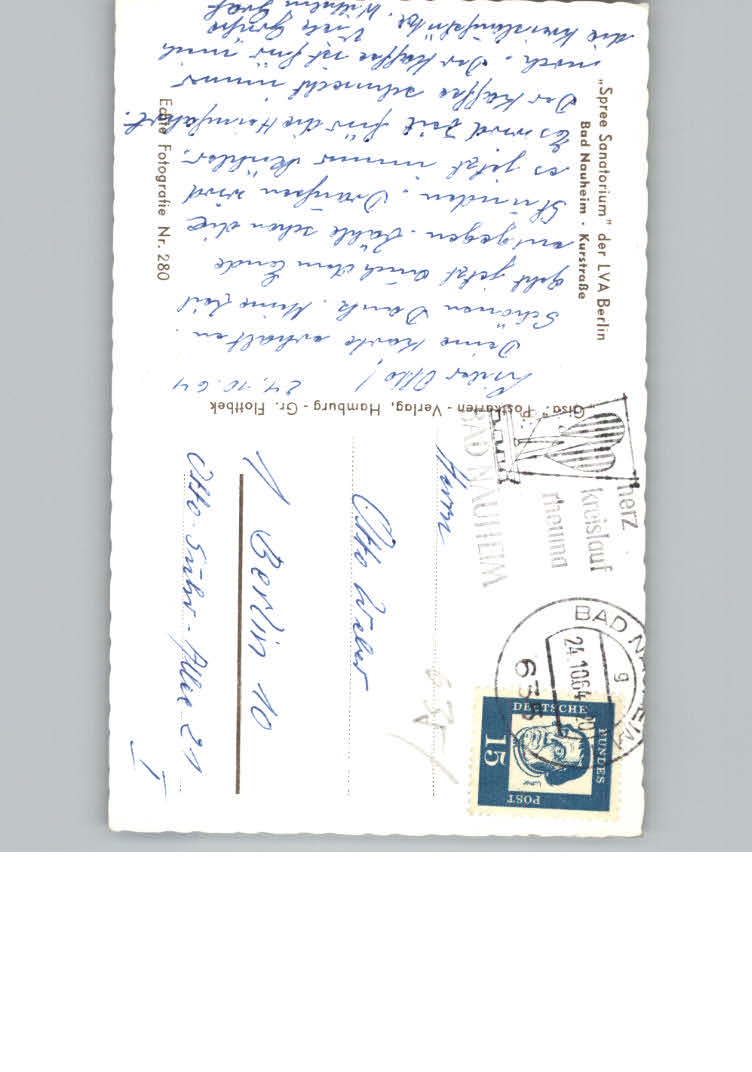 "Spree Sanatorium" der LVA Berlin
Bad Nauheim · Kurstraße
Lieber Otto! 24.10.64
Deine Karte erhalten.
Schönen Dank. Meine Zeit
geht jetzt auch dem Ende
entgegen. Zähle schon die
Stunden. Draußen wird
es jetzt immer kühler.
Es wird Zeit für die Heimfahrt.
Der Kaffee schmeckt immer
noch. Der Kaffee ist für mich
die
Viele Grüße
Wilhelm Graf
Echte Fotografie Nr. 280
"Gisa" Postkarten-Verlag, Hamburg - Gr. Flottbek
herz
kreislauf
rheuma
BAD NAUHEIM
BAD NAUHEIM
24.10.64
g
DEUTSCHE
BUNDES
POST
15
Herrn
Otto Weber
1 Berlin 10
Otto-Suhr-Allee 21
I